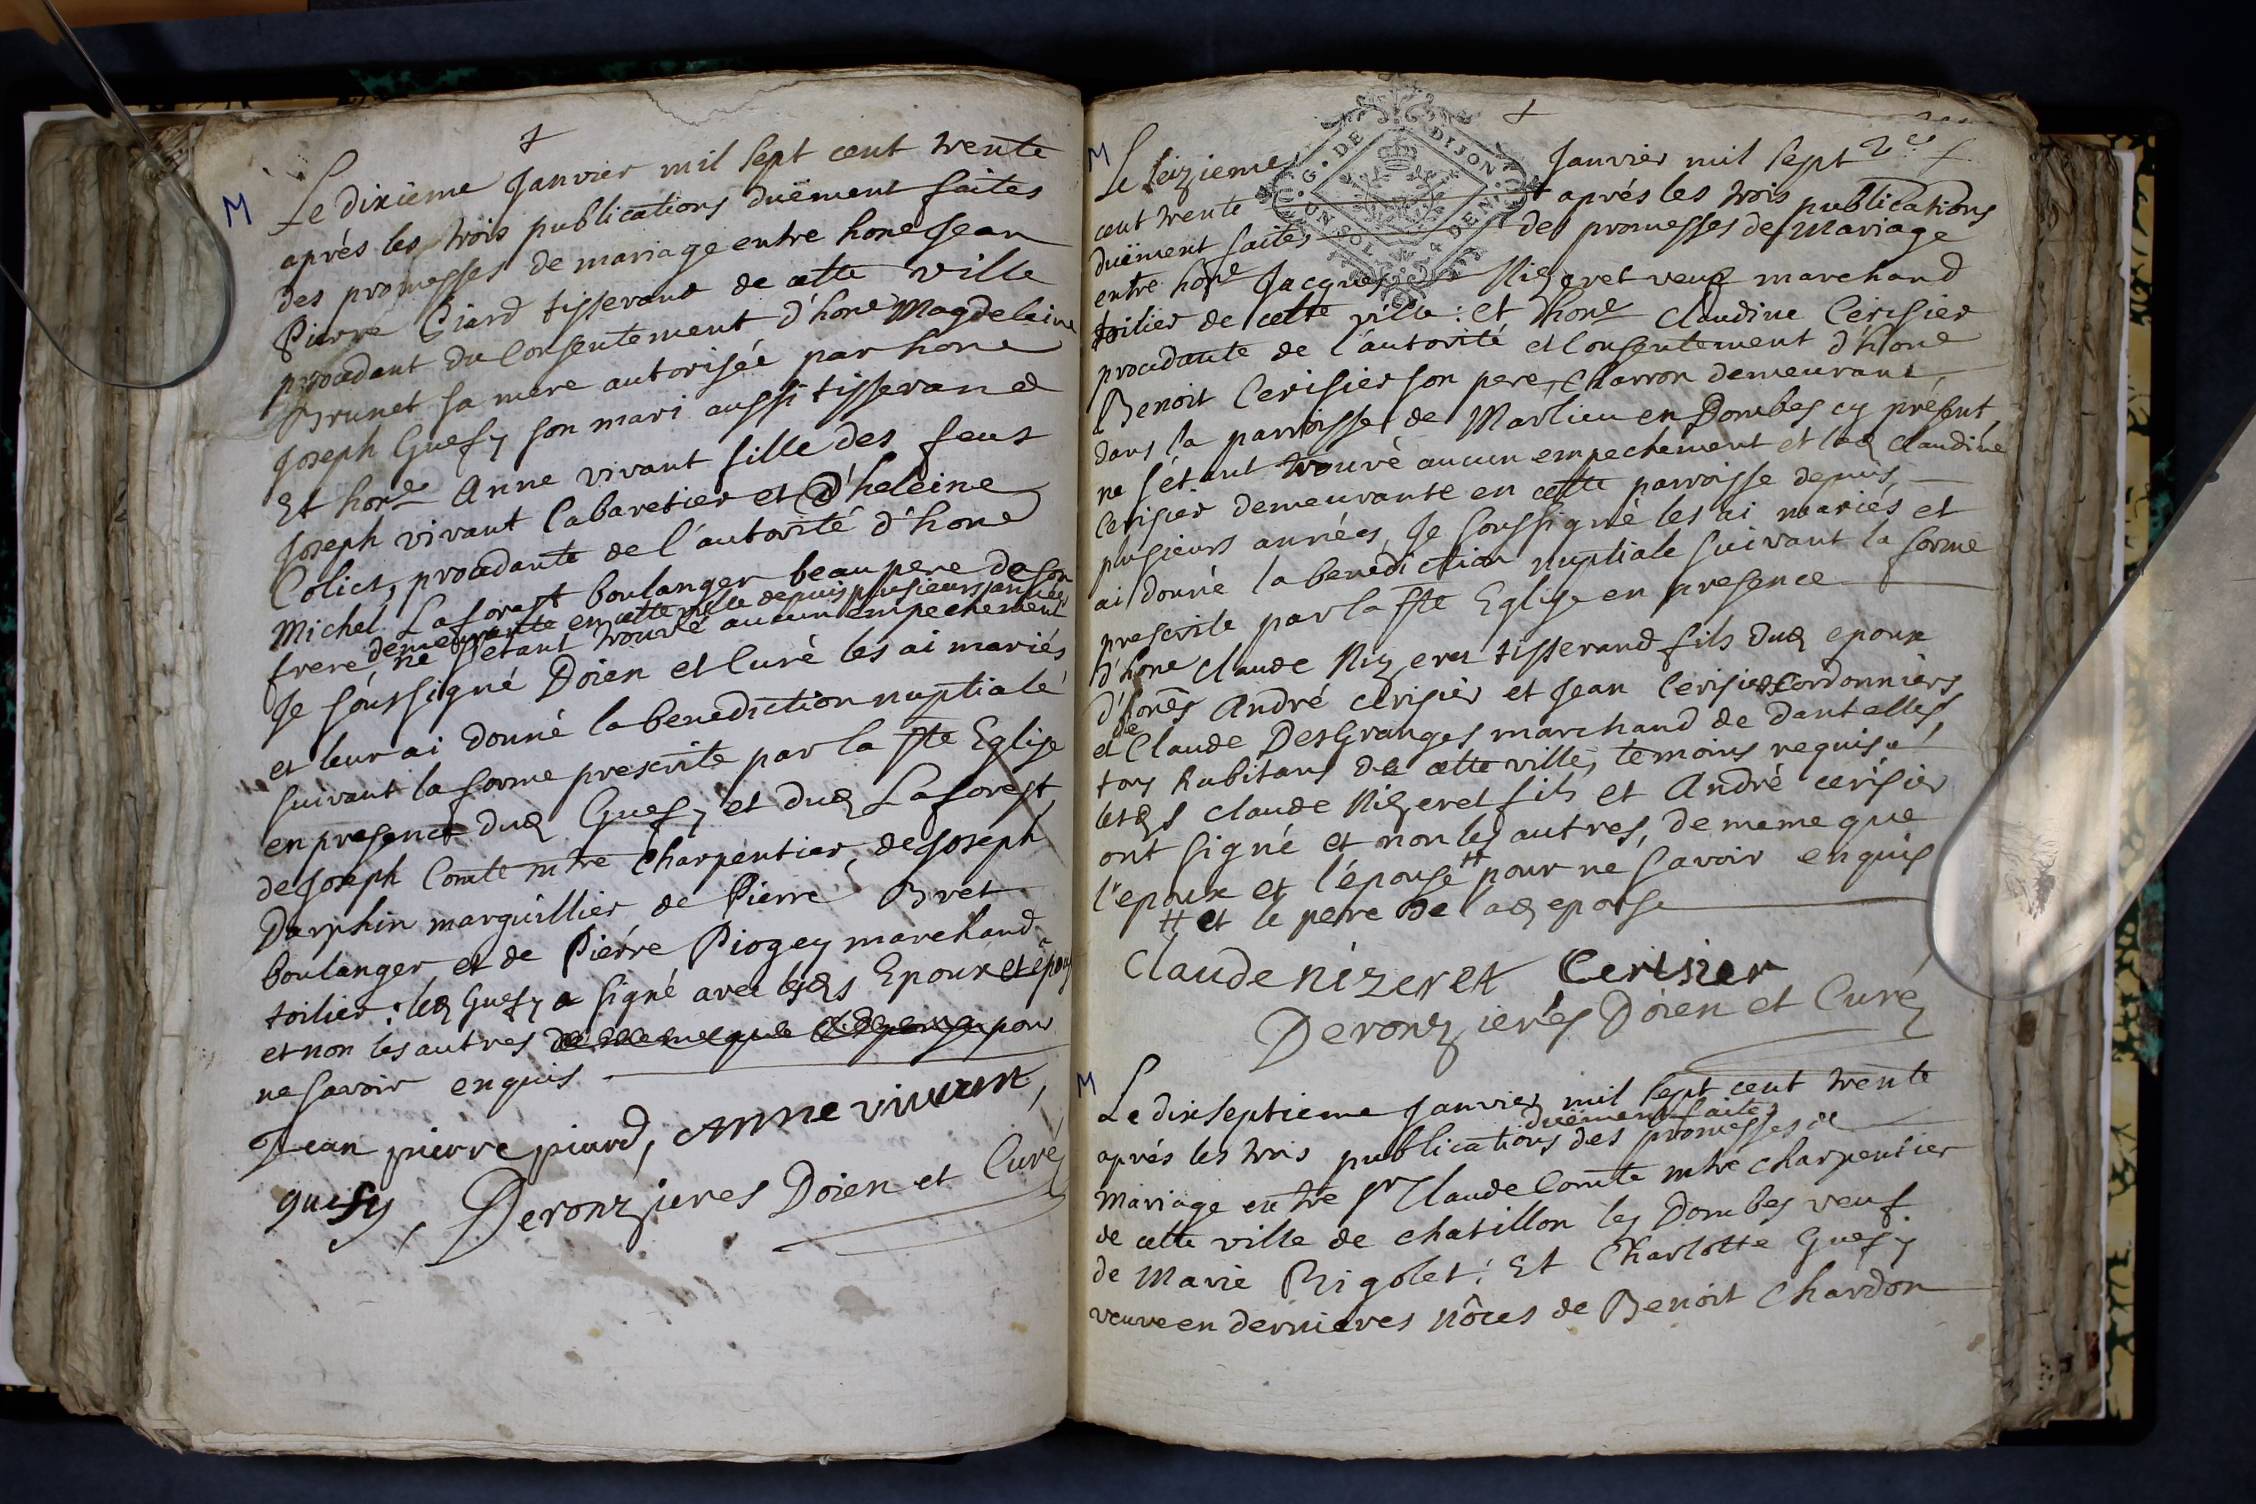 M
Le dixième Janvier mil sept cent trente
aprés les trois publications duëment faites
des promesses de mariage entre hone Jean
Pierre Piard tisserand de cette ville
procedant du Consentement d'hone Magdeleine
Brunet sa mere autorisée par hone
Joseph Guefy son mari aussi tisserand
Et hone Anne vivant fille des feus
Joseph vivant Cabaretier et d'heleine
Colict, procedante de l'autorité d'hone
Michel Laforest boulanger beaupere de son
demeurante en cette ville depuis plusieurs années
frere ne s'etant trouvé aucun empechement
Je soussigné Doien et Curé les ai mariés
et leur ai donné la benediction nuptiale
suivant la forme prescrite par la ste Eglise
en presence dud Guefy et dud Laforest
de Joseph Comte mtre Charpentier, de Joseph
Darphin marguillier de Pierre Bret
boulanger et de Piérre Piogey marchand
toilier : led Guefy a signé avec lesds Epoux et epouse
et non les autres pour
ne savoir enquis
Jean pierre piard, Anne vivant,
guefy, Deronzieres Doien et Curé
M
Le seizieme Janvier mil sept
cent trente aprés les trois publications
duëment faites des promesses de Mariage
entre hone Jacques Nizeret veuf marchand
toilier de cette ville : et hone Claudine Cerisier
procedante de l'autorité et Consentement d'hone
Benoit Cerisier son pere, Charron demeurant
dans la parroisse de Marlieu en Dombes cy présent
ne s'étant trouvé aucun empechement et lad Claudine
Cerisier demeurante en cette parroisse depuis
plusieurs années, Je soussigné les ai mariés et
ai donné la benediction nuptiale suivant la forme
prescrite par la ste Eglise en presence
d'hone Claude Nizeret tisserand fils dud epoux
d'hones André cerisier et Jean Cerisier Cordonniers
de
et Claude DesGranges marchand de dantelles
tous habitans de cette ville, temoins requis.
lesds Claude Nizeret fils et André cerisier
ont signé et non les autres, de meme que
l'epoux et l'épouse # pour ne savoir enquis
# et le pere de lad epouse
Claude nizeret Cerisier
Deronzierés Doien et Curé
M
Le dixseptieme Janvier mil sept cent trente
duëment faites
aprés les trois publications des promesses de
mariage entre sr Claude Comte mtre charpentier
de cette ville de chatillon les Dombes veuf
de Marie Rigolet : Et Charlotte Guefy
veuve en dernieres nôces de Benoit Chardon
G. DE DIJON
UN SOL 4 DEN.